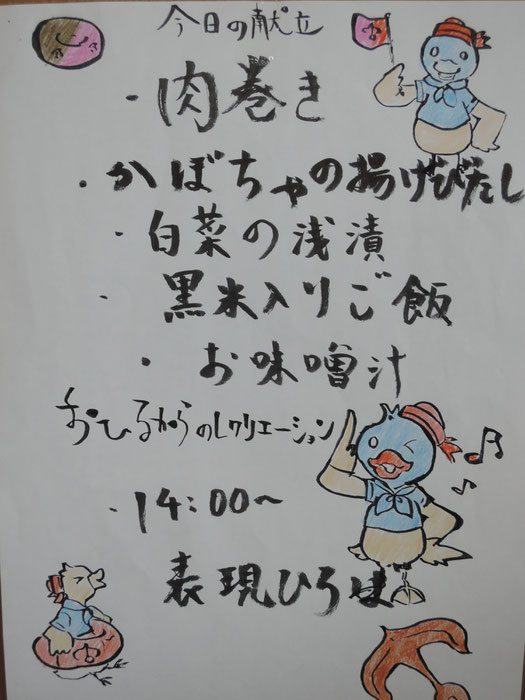 今日の献立
・肉巻き
・かぼちゃの揚げびたし
・白菜の浅漬
・黒米入りご飯
・お味噌汁
おひるからのレクリエーション
・14:00〜
表現ひろば